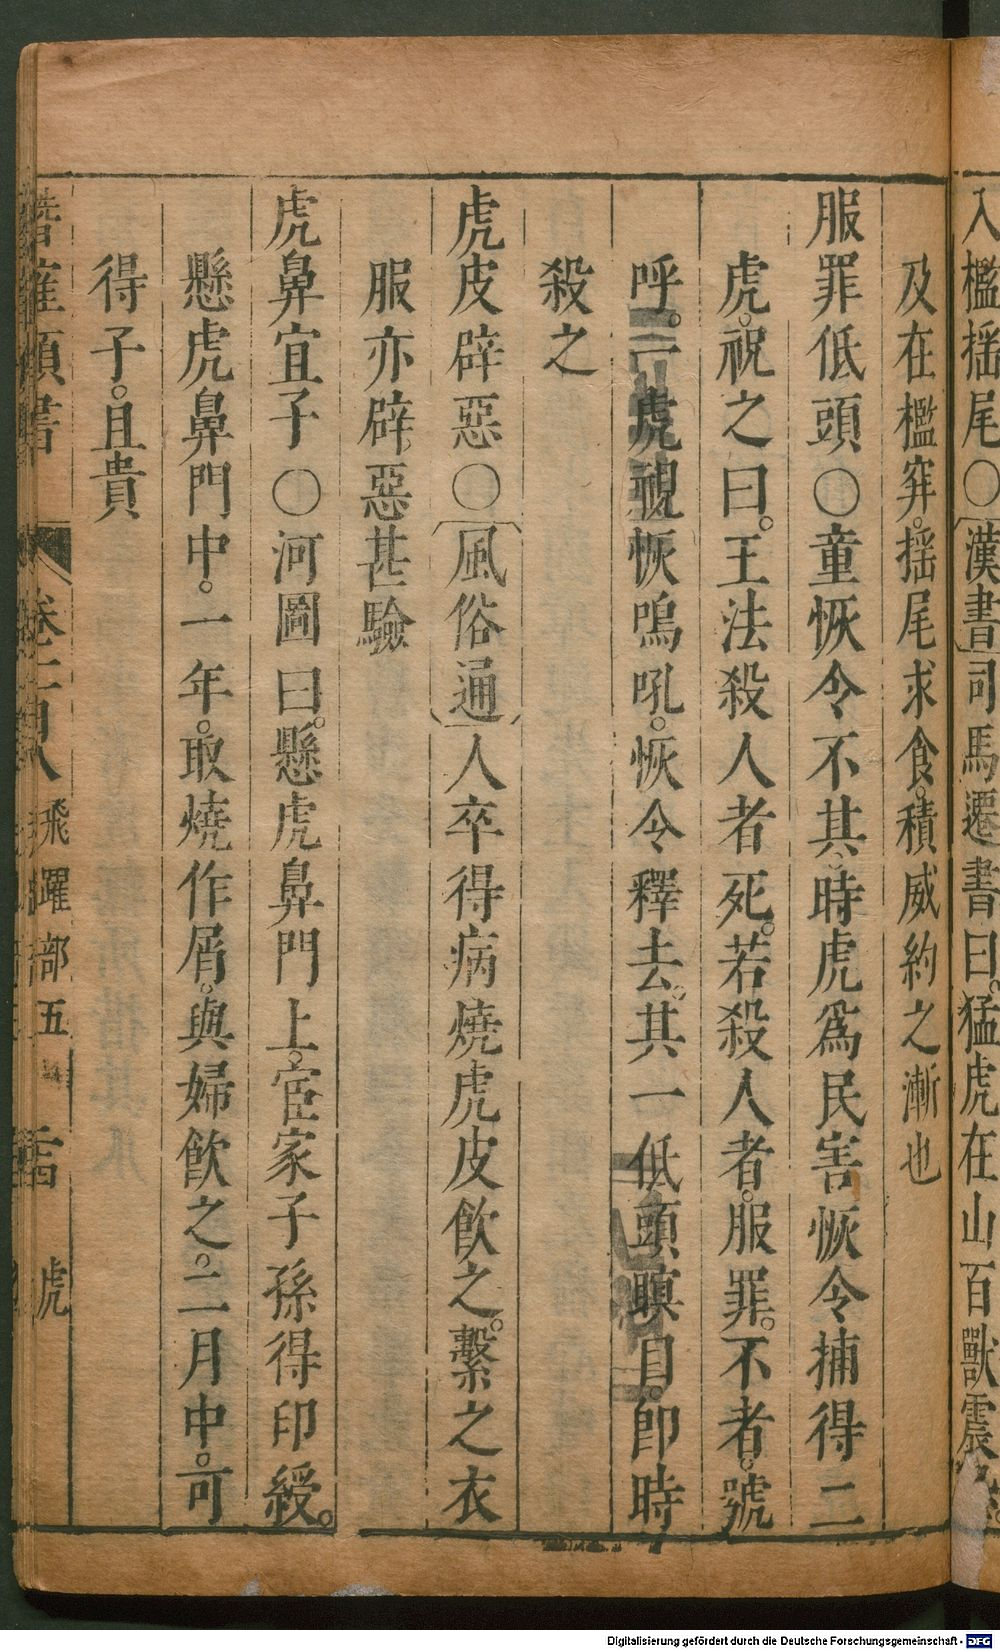 入檻揺尾○漢書司馬遷書曰。猛虎在山百獸震
及在檻穽。揺尾求食。積威約之漸也
服罪低頭○童恢令不其。時虎爲民害恢令捕得二
虎。祝之曰。王法殺人者死。若殺人者。服罪。不者。號
呼。一虎視恢鳴吼。恢令釋去。其一低頭瞑目。即時
殺之
虎皮辟惡○風俗通人卒得病燒虎皮飲之。繫之衣
服亦辟惡甚驗
虎鼻宜子○河圖曰。懸虎鼻門上。宦家子孫得印綬。
懸虎鼻門中。一年。取燒作屑。與婦飲之。二月中。可
得子。且貴
潛確類書 卷一百八 飛躍部五 虎
Digitalisierung gefördert durch die Deutsche Forschungsgemeinschaft - DFG